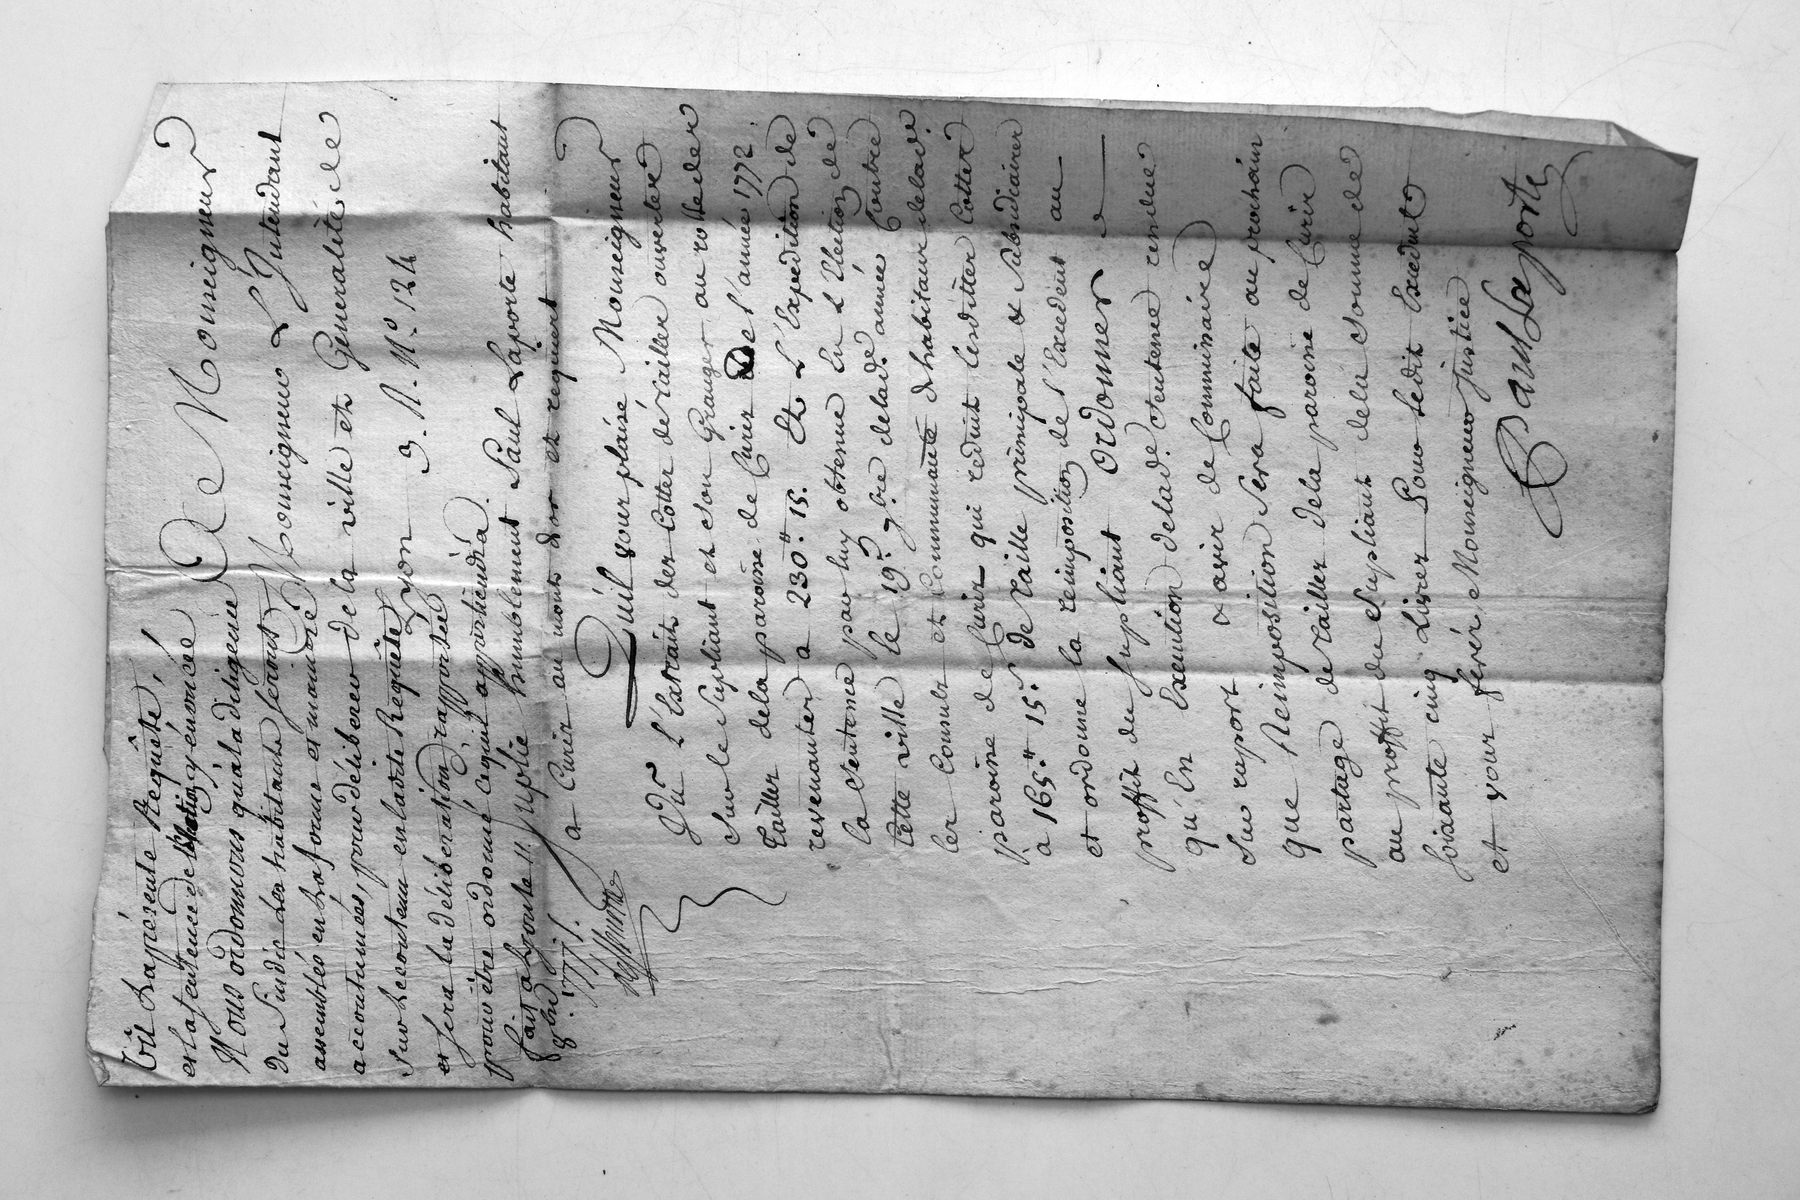 A Monseigneur
Monseigneur L'Intendant
de la ville et Generalité de
Lyon 3. N. N.° 124
Suplie humblement Paul Laporte habitant
a Curir au mont d'or et requiert
Qu'il vour plaise Monseigneur
Vu L'Extrait der Cotter de tailler ouverter
Sur le Supliant et son Granger au rolle der
tailler de la paroisse de Curir de l'année 1772.
revenanter a 230.tt 15. Et L'Expedition de
la Sentence par luy obtenue En L'Election de
Cette ville le 19.e 9bre de lad.e année Contre
ler Consulr et Communauté d'habitanr de lad.e
paroisse de Curir qui reduit lesditter Cotter
a 165.tt 15.s de taille principale & Subsidiairer
et ordonne la reimposition de l'Excedent au
proffit du Supliant Ordonner
qu'En Execution de lad.e Sentence rendue
Sur raport & avir de Commissaire
que Reimposition Sera faite au prochain
partage de tailler de la paroisse de Curir
au proffit du Supliant de la Somme de
soixante cinq Livrer Pour ledit Excedent
et vour ferér Monseigneur Justice
Paul Laporte
Vû La présente Requête,
et la sentence de l'Election y énoncée
Nous ordonnons qu'a la diligence
du Sindic Les habitants seront
assemblés en La forme et maniere
accoutumées, pour déliberer
sur Le contenu en ladite Requête
et sera la déliberation rapportée
pour être ordonné ce qu'il appartiendra.
fait a Lyon le 11
8bre 1777.